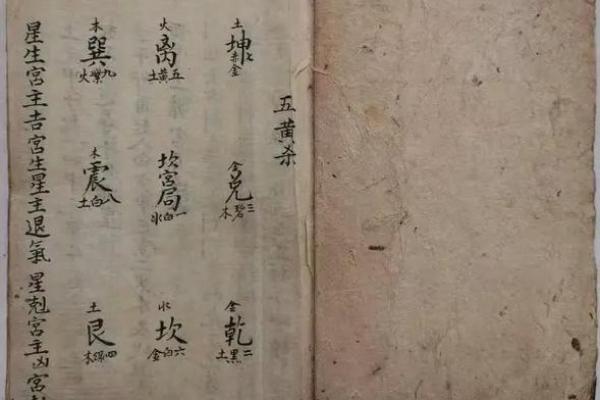 五黄杀
土
坤
七赤金
金
兑
三碧木
金
乾
二黑土
火
离
五黄土
坎宫局
一白水
水
坎
六白金
木
巽
九紫火
木
震
八白土
土
艮
四綠木
星生宫主吉宫生星主退氣 星剋宫主凶宫